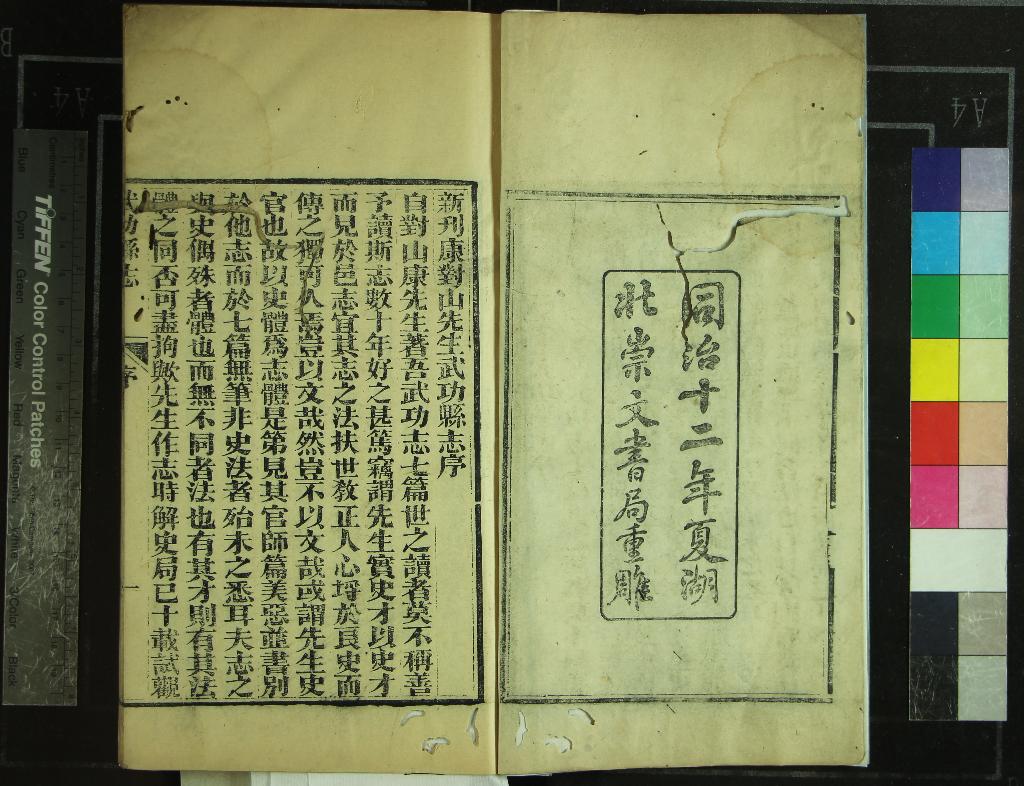 同治十二年夏湖
北崇文書局重雕
新刊康對山先生武功縣志序
自對山康先生著吾武功志七篇世之讀者莫不稱善
予讀斯志數十年好之甚篤竊謂先生實史才以史才
而見於邑志宜其志之法扶世教正人心埒於良史而
傳之獨
豈以文哉然豈不以文哉或謂先生史
官也故以史體爲志體是第見其官師篇美惡並書別
於他志而於七篇無筆非史法者殆未之悉耳夫志之
與史偶殊者體也而無不同者法也有其才則有其法
體之同否可盡拘歟先生作志時解史局已十載試觀
武功縣志
序
一
TIFFEN Color Control Patches
Blue
Cyan
Green
Yellow
Red
Magenta
White
3/Color
Black
Centimetres
A4
A4
B